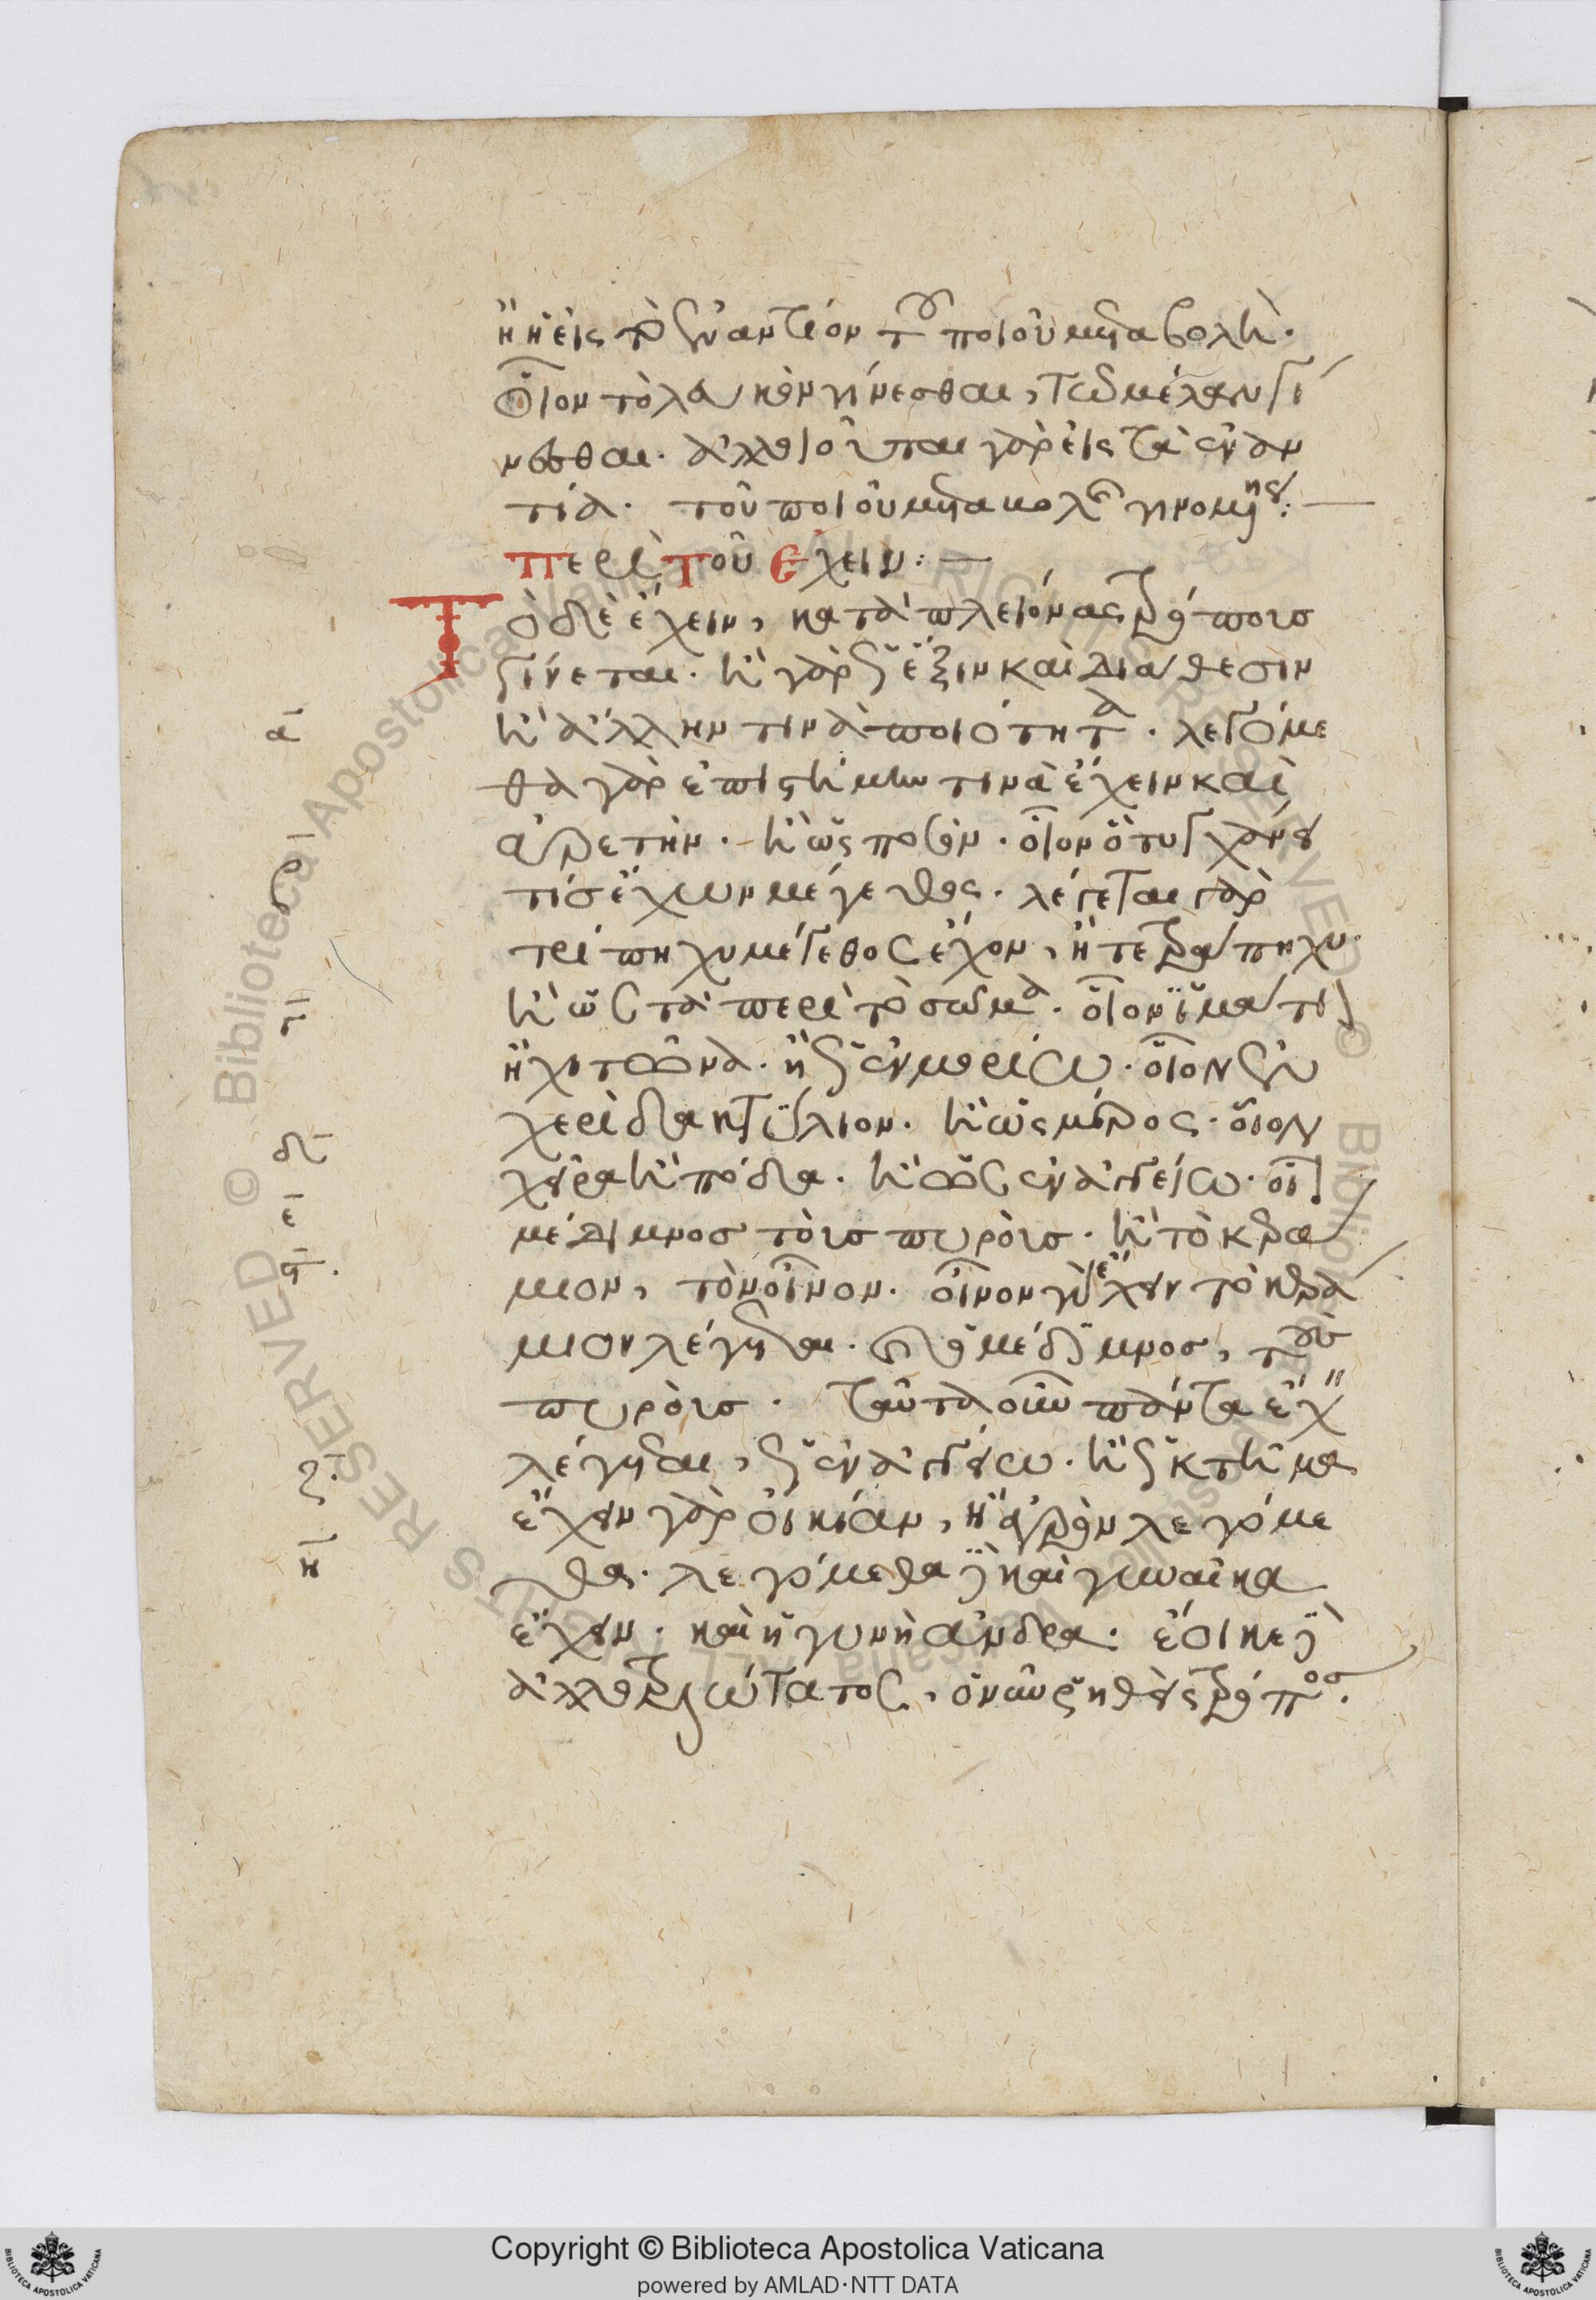 ἢ ἡ εἰς τὸ ἐναντίον τοῦ ποιοῦ μεταβολὴ·
οἷον τὸ λευκὸν γίνεσθαι, τῶ μέλαν γί
νεσθαι· ἀλλοιοῦται γὰρ εἰς τὰ ἐναν
τία· τοῦ ποιοῦ μεταβολῆς γινομένης:
περὶ τοῦ ἔχειν:
Τὸ δὲ ἔχειν, κατὰ πλείονας τρόπους
γίνεται· ἢ γὰρ ὡς ἕξιν καὶ διάθεσιν
ἢ ἄλλην τινὰ ποιότητα· λεγόμε
θα γὰρ ἐπιστήμην τινὰ ἔχειν καὶ
ἀρετήν· ἢ ὡς ποσόν· οἷον ὃ τυγχάνει
τίσ ἔχων μέγεθος· λέγεται γὰρ
τρίπηχυ μέγεθος ἔχον, ἢ τετράπηχυ·
ἢ ὡς τὰ περὶ τὸ σῶμα· οἷον ἱμάτιον
ἢ χιτῶνα· ἢ ὡς ἐν μορίω· οἷον ἐν
χειρὶ δακτύλιον· ἢ ὡς μέρος· οἷον
χεῖρα ἢ πόδα· ἢ ὡς ἐν ἀγγείω· οἷον
μέδιμνοσ τοὺσ πυροὺσ· ἢ τὸ κερά
μιον, τὸν οἶνον· οἶνον γὰρ ἔχειν τὸ κερά
μιον λέγεται· καὶ ὁ μέδιμνοσ, τοὺσ
πυροὺσ· ταῦτα οὖν πάντα ἔχειν
λέγεται, ὡς ἐν ἀγγείω· ἢ ὡς κτῆμα
ἔχειν γὰρ οἰκίαν, ἢ ἀγρὸν λεγόμε
θα· λεγόμεθα δὲ καὶ γυναῖκα
ἔχειν· καὶ ἡ γυνὴ ἄνδρα· ἔοικε δὲ
ἀλλοτριώτατος, ὁ νῦν ῥηθεὶς τρόποσ·
α
β
γ
δ
ε
ϛ
ζ
η
Copyright © Biblioteca Apostolica Vaticana
powered by AMLAD·NTT DATA